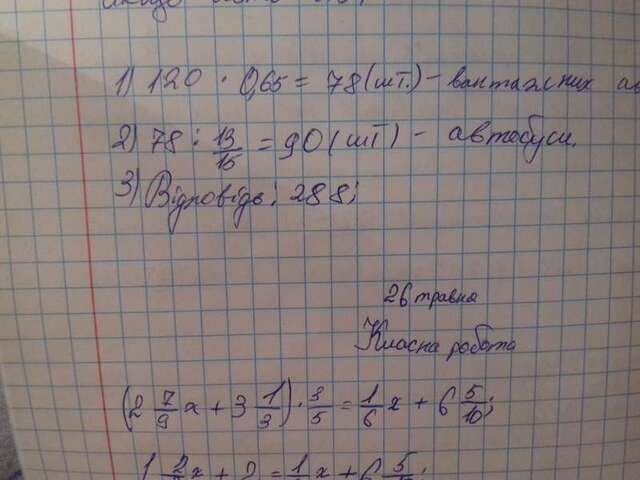 1) 120 · 0,65 = 78 (шт.) – вантажних
2) 78 : 13/15 = 90 (шт) – автобуси.
3) Відповідь: 288;
26 травня
Класна робота
(2 7/9 x + 3 1/3) · 3/5 = 1/6 x + 6 5/10;
x + 2 = 1 x + 6 5